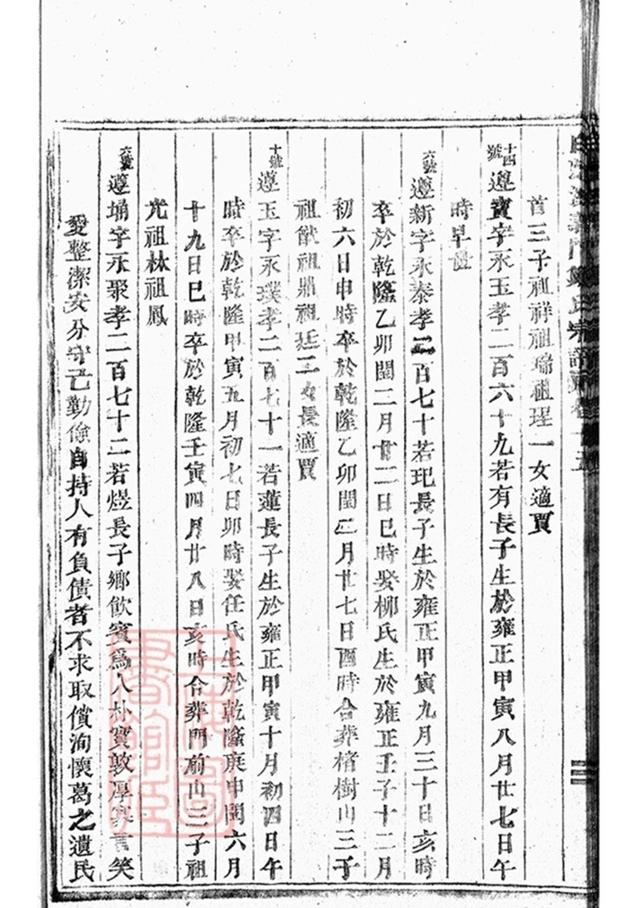 首三子祖祥祖瑞祖珵一女適賈
十四號遵寶字永玉孝二百六十九若有長子生於雍正甲寅八月廿七日午
時早世
六號遵新字永泰孝二百七十若玘長子生於雍正甲寅九月三十日亥時
卒於乾隆乙卯閏二月廿二日巳時娶柳氏生於雍正壬子十二月
初六日申時卒於乾隆乙卯閏二月廿七日酉時合葬楮樹山三子
祖猷祖鼎祖廷二女長適賈
十號遵玉字永璞孝二百七十一若蓮長子生於雍正甲寅十月初四日午
時卒於乾隆甲寅五月初七日卯時娶任氏生於乾隆庚申閏六月
十九日巳時卒於乾隆壬寅四月廿八日亥時合葬門前山三子祖
光祖林祖鳳
六號遵埇字永聚孝二百七十二若煜長子鄉飲賓爲人朴實敦厚寡言笑
愛整潔安分守己勤儉自持人有負債者不求取償洵懷葛之遺民